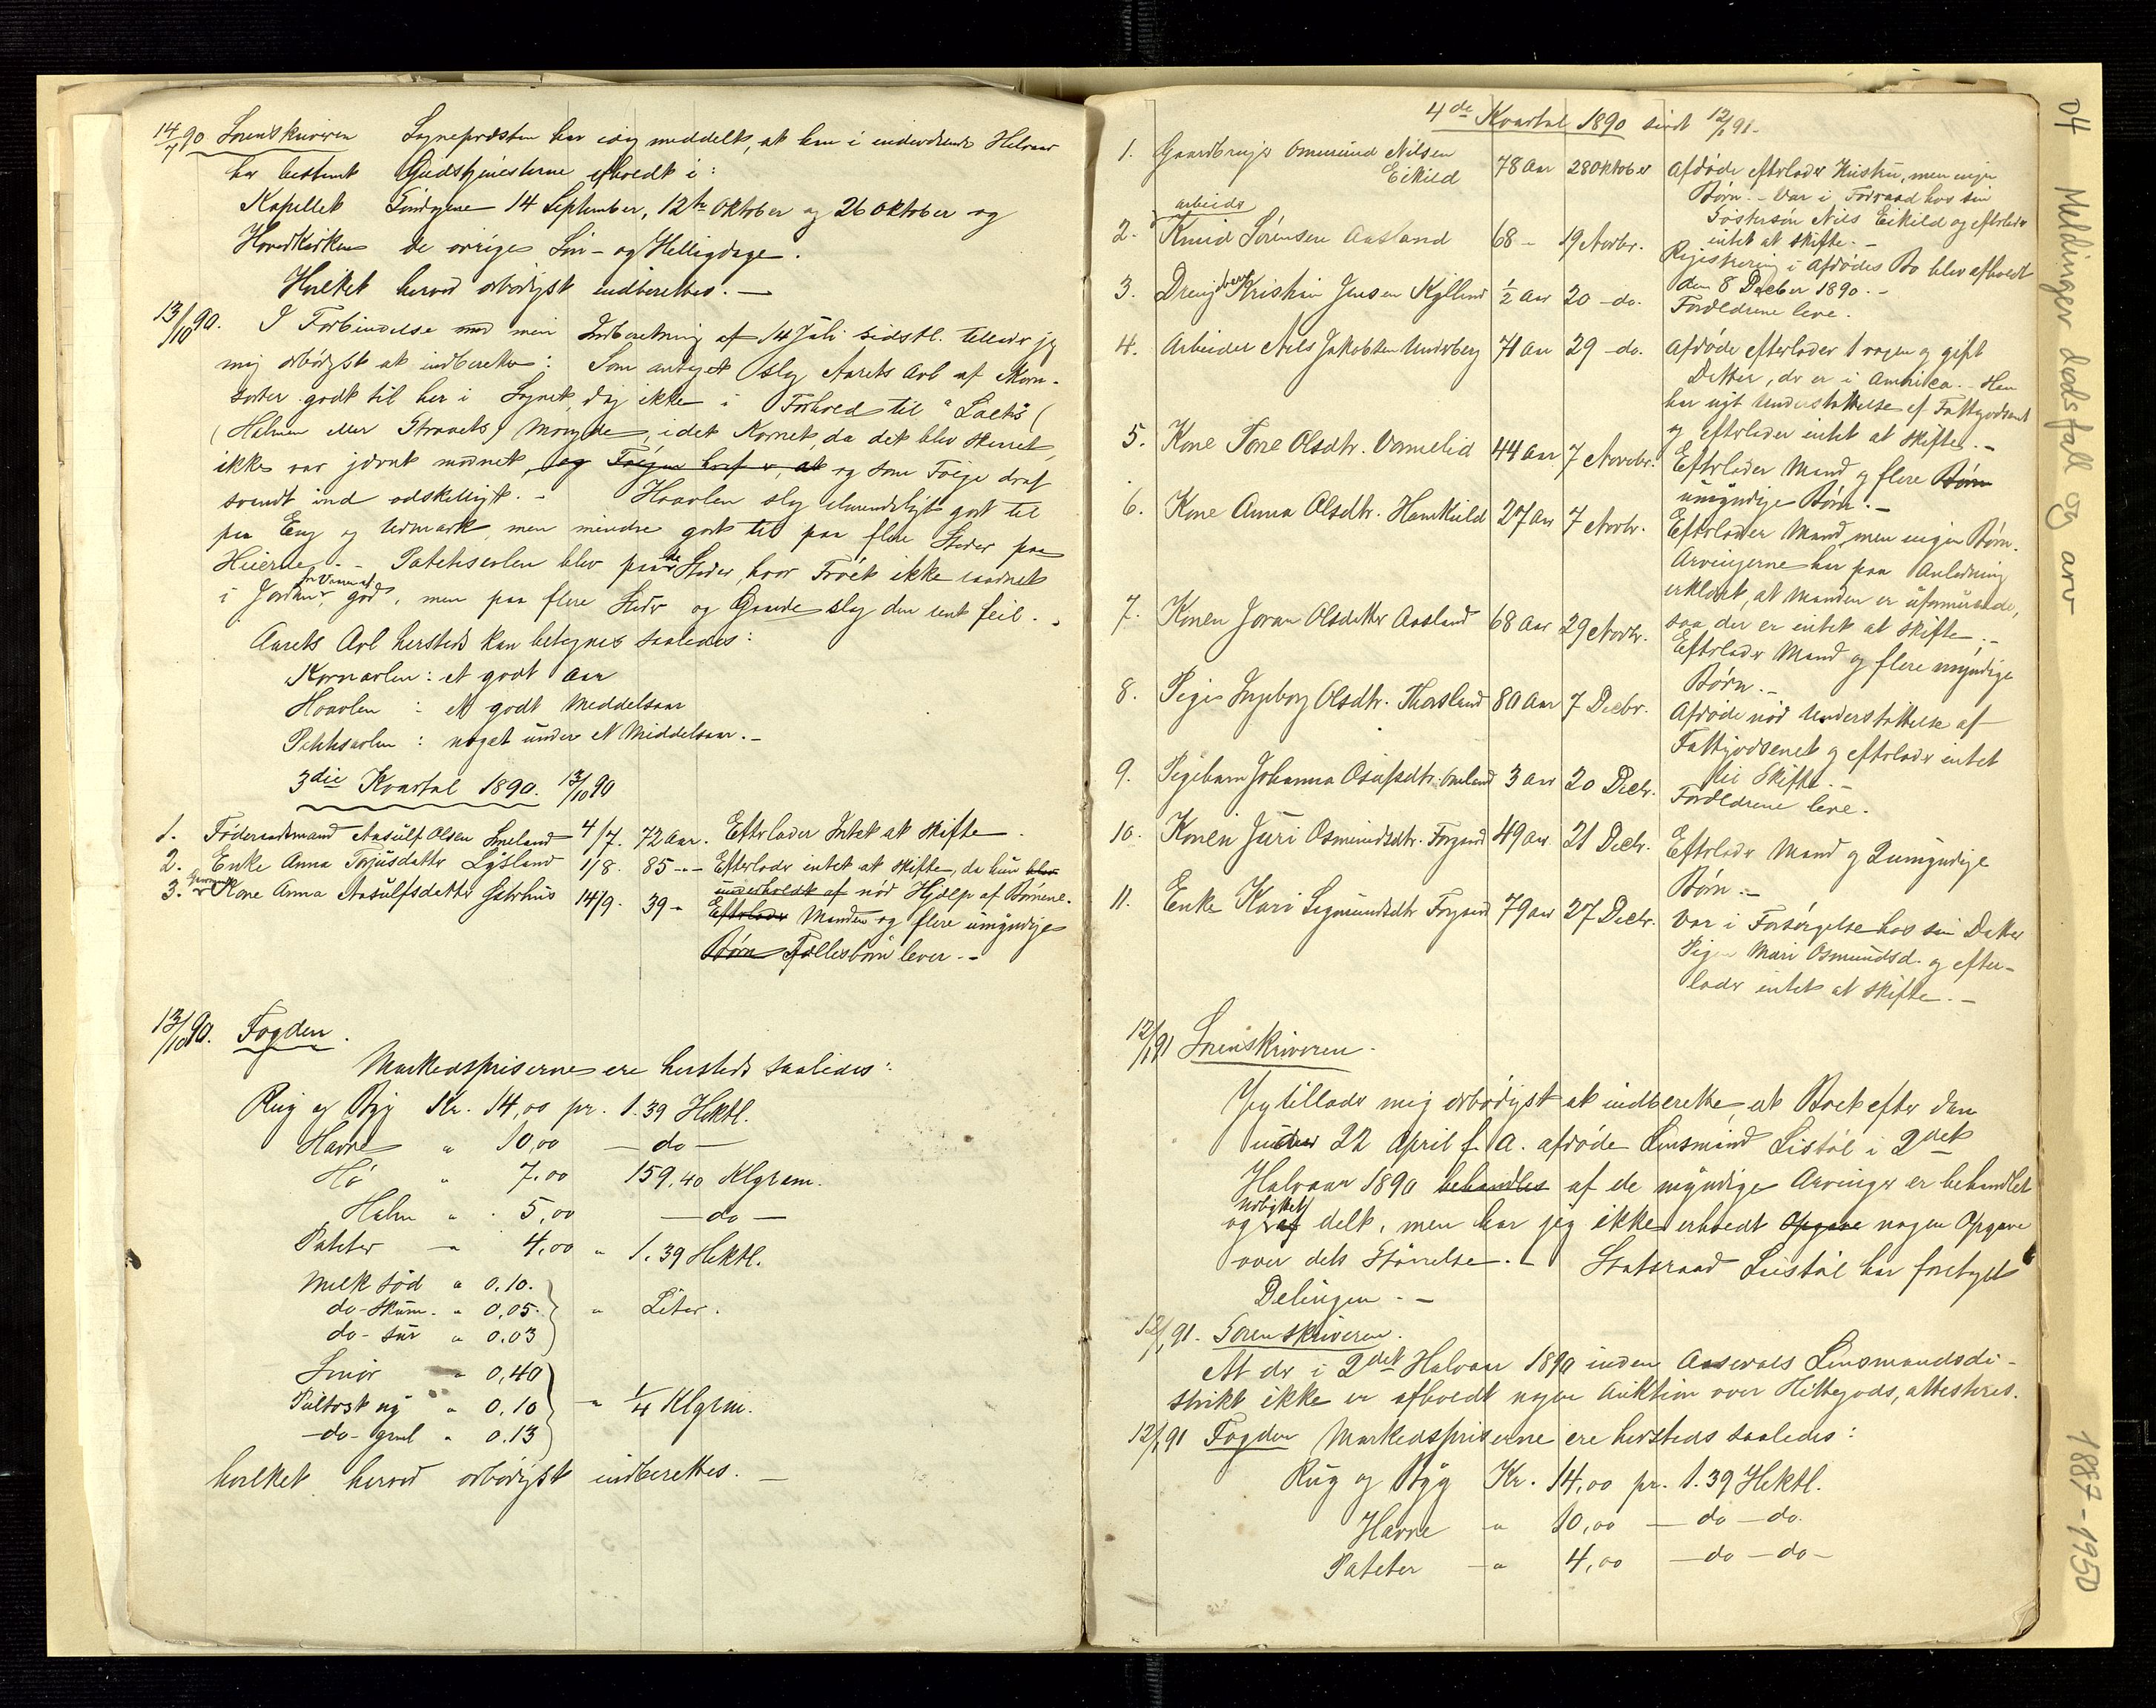 14/7 90 Sorenskriveren Sognepræsten har idag meddelt, at han i indeværende Halvaar
har bestemt Gudstjenesterne afholdt i:
Kapellet Søndagene 14 September, 12te Oktober og 26 Oktober og
Hovedkirken de øvrige Søn- og Helligdage.
Hvilket herved ærbødigst indberettes. —
13/10 90. I Forbindelse med min Indberetning af 14 Juli sidstl. tillader jeg
mig ærbødigst at indberette: Som antaget slog Aarets Avl af Korn-
sorter godt til her i Sognet, dog ikke i Forhold til "Laets
(Halmen eller Straaets) Mængde, idet Kornet, da det blev skaaret,
ikke var jævnt modnet, og som Følge deraf
svandt ind adskilligt. - Høavlen slog almindeligt godt til
paa Eng og Udmark, men mindre godt til paa flere Steder paa
Heierne. - Potetesavlen blev paa de Steder, hvor Frøet ikke raadnet
i Jorden, god, men paa flere Steder og Gaarde slog den rent feil. -
Aarets Avl hersteds kan betegnes saaledes:
Kornavlen: et godt Aar
Høavlen : et godt Middelsaar
Potetesavlen: noget under et Middelsaar. -
3die Kvartal 1890. 13/10 90
1. Føderaadsmand Aasulf Olsen Smeland 4/7. 72 Aar. Efterlader Intet at skifte.
2. Enke Anna Torjusdatter Løsland 1/8. 85 -- Efterlader intet at skifte, da hun blev
underholdt af nød Hjælp af Børnene.
3. Kone Anna Aasulfsdatter Gabrhus 14/9. 39 - Efterlader Manden og flere umyndige
Børn Fællesbørn lever. -
13/10 90. Fogden.
Markedspriserne ere hersteds saaledes:
Rug og Byg Kr. 14,00 pr. 1.39 Hektl.
Havre " 10,00 — do —
Hø " 7.00 159.40 Klgram.
Halm " 5,00 — do —
Poteter " 4,00 " 1.39 Hektl.
Melk sød " 0.10.
do - skum. " 0,05. " Liter.
do - sur " 0.03
Smør " 0,40
Pultost ny " 0.10 " 1/4 Klgrm.
- do - gml " 0.13
hvilket herved ærbødigst indberettes. —
4de Kvartal 1890 sendt 12/1 91.
1. Gaardbruger Omund Nilsen
Eikild 78 Aar 28 Oktober Afdøde efterlader Hustru, men ingen
Børn. - Var i Forraad hos sin
Søstersøn Nils Eikild og efterlader
intet at skifte. -
2. arbeider Knud Sørensen Aasland 68 - 19 Novbr. Registrering i Afdødes Bo blev afholdt
den 8 Decber 1890. -
3. Drengebarn Kristen Jensen Kylland 1/2 Aar 20 - do. Forældrene leve.
4. Arbeider Nils Jakobsen Underberg 71 Aar 29 - do. Afdøde efterlader 1 voxen og gift
Datter, der er i Amerika. - Han
har nydt Understøttelse af Fattigvæsenet
og efterlader intet at skifte. -
5. Kone Tone Olsdtr. Vormelid 44 Aar 7 Novbr. Efterlader Mand og flere Børn
umyndige Børn. -
6. Kone Anna Olsdtr. Homkild 27 Aar 7 Novbr. Efterlader Mand, men ingen Børn.
Arvingerne har paa Anledning
erklært, at Manden er uformuende,
saa der er intet at skifte. -
7. Konen Joran Olsdatter Aasland 68 Aar 29 Novbr. Efterlader Mand og flere myndige
Børn. -
8. Pige Ingeborg Olsdtr. Thorsland 80 Aar 7 Decbr. Afdøde nød Understøttelse af
Fattigvæsenet og efterlader intet
til Skifte. -
9. Pigebarn Johanna Osufsdtr. 3 Aar 20 Decbr. Forældrene leve.
10. Konen Juri Osmundsdtr. Forgard 49 Aar 21 Decbr. Efterlader Mand og 2 umyndige
Børn. -
11. Enke Kari Sigmundsdtr. Forgard 79 Aar 27 Decbr. Var i Forsørgelse hos sin Datter
Pige Mari Osmundsd. og efter-
lader intet at skifte. -
12/1 91 Sorenskriveren.
Jeg tillader mig ærbødigst at indberette, at Boet efter den
under 22 April f. A. afdøde Lensmand Liestøl i 2det
Halvaar 1890 behandles af de myndige Arvinger er behandlet
og delt, men har jeg ikke erholdt Opgave nogen Opgave
over dets Størrelse. - Statsraad Liestøl har foretaget
Delingen. -
12/1 91. Sorenskriveren.
At der i 2det Halvaar 1890 inden Aaserals Lensmandsdi-
strikt ikke er afholdt nogen Auktion over Hittegods, attesteres.
12/1 91 Fogden Markedspriserne ere hersteds saaledes:
Rug og Byg Kr. 14,00 pr. 1.39 Hektl.
Havre - " 10,00 — do — do.
Poteter - " 4,00 — do — do —
04 Meldinger dødsfall og arv 1887-1950